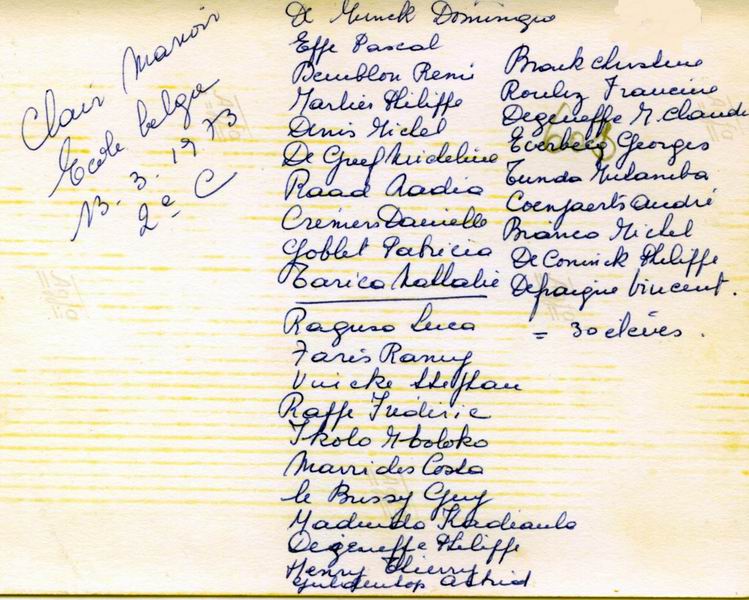 Clair Manoir
Ecole belge
13.3.1973
2e C
De Munck Domingio
Effe Pascal
Bemblon Remi
Marlier Philippe
Denis Michel
De Greef Micheline
Raad Nadia
Cremers Danielle
Goblet Patricia
Tarica Nathalie
Raguso Luca
Faris Ramy
Vuicke Stephan
Raffe Frédéric
Ikolo Mboloko
Mavrides Costa
le Bussy Guy
Madudu Kadianda
Degeneffe Philippe
Henry Thierry
Guldentop Astrid
Brank Christine
Roulez Francine
Degeneffe M. Claude
Everbecq Georges
Tunda Mutamba
Coenjaerts André
Branco Michel
De Coninck Philippe
Depaigne Vincent.
= 30 élèves.